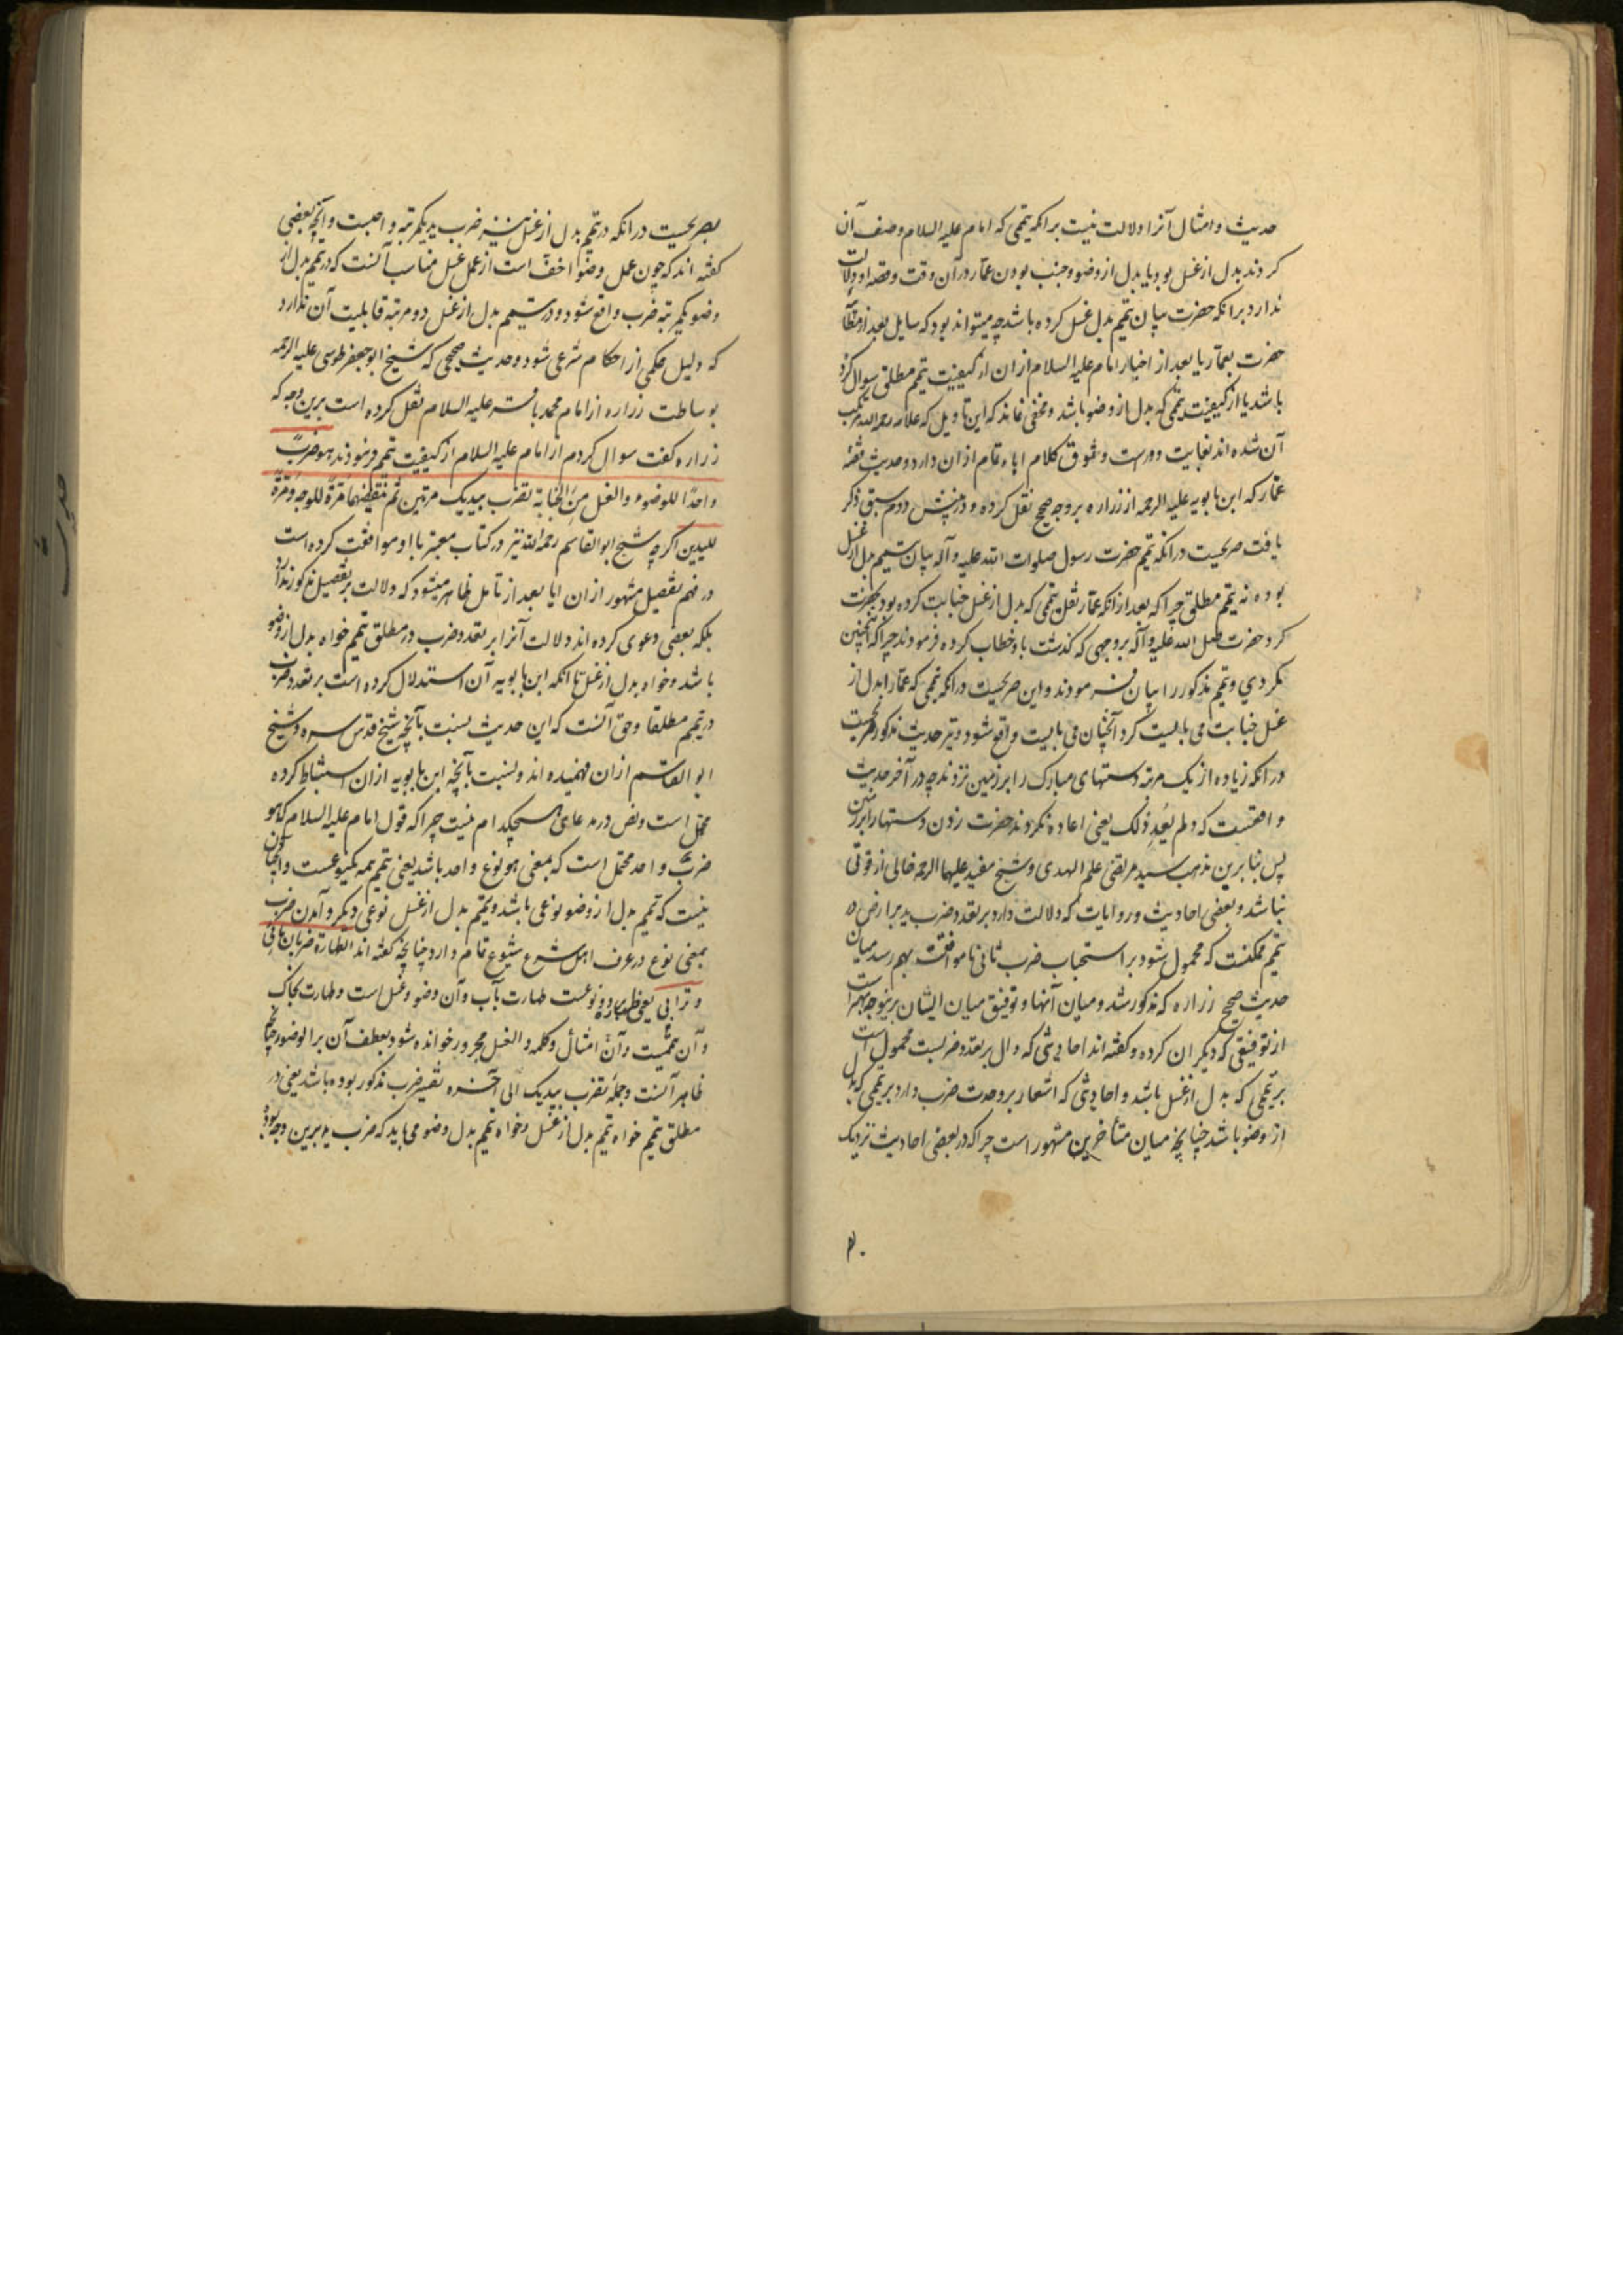 حدیث و امثال آنرا دلالت نیست برانکه تیممی که امام علیه السلام وصف آن
کردند بدل از غسل بود یا بدل از وضو و جنب بودن عمار در آن وقت و قصه او دلالت
ندارد برانکه حضرت بیان تیمم بدل غسل کرده باشد چه میتواند بود که سایل بعد از
حضرت بعمار یا بعد از اخبار امام علیه السلام ازان از کیفیت تیمم مطلق سوال کرده
باشد یا از کیفیت تیممی که بدل از وضو باشد و مخفی نماند که این تاویل که علامه رحمه الله مرتکب
آن شده اند بغایت دورست و سوق کلام اباء تمام ازان دارد و حدیث قصه
عمار که ابن بابویه علیه الرحمه از زراره بروجه صحیح نقل کرده و در پیش دوم سبق ذکر
یافت صریحست درانکه تیمم حضرت رسول صلوات الله علیه و آله بیان تیمم بدل از غسل
بوده نه تیمم مطلق چرا که بعد ازانکه عمار نقل تیممی که بدل از غسل جنابت کرده بود بحضرت
کرد حضرت صلی الله علیه و آله بروجهی که گذشت باو خطاب کرده فرمودند چرا که اینچنین
نکردی و تیمم مذکور را بیان فرمودند و این صریحست درانکه تیممی که عمار را بدل از
غسل جنابت می بایست کرد آنچنان می بایست واقع شود و نیز حدیث مذکور صریحست
درانکه زیاده از یک مرتبه دستهای مبارک را بر زمین نزدند چه در آخر حدیث
واقعست که و لم یُعِد ذلک یعنی اعاده نکردند حضرت زدن دستها را بر زمین
پس بنابرین مذهب سید مرتضی علم الهدی و شیخ مفید علیهما الرحمه خالی از قوتی
نباشد و بعضی احادیث و روایات که دلالت دارد بر تعدد ضرب ید بر ارض در
تیمم ممکنست که محمول شود بر استحباب ضرب ثانی تا موافقت بهم رسد میان
حدیث صحیح زراره که مذکور شد و میان آنها و توفیق میان ایشان برینوجه بهتر است
از توفیقی که دیگران کرده و گفته اند احادیثی که دال بر تعدد ضربست محمول است
بر تیممی که بدل از غسل باشد و احادیثی که اشعار بر وحدت ضرب دارد بر تیممی که بدل
از وضو باشد چنانچه میان متأخرین مشهور است چرا که در بعضی احادیث نزدیک
بصریحست درانکه در تیمم بدل از غسل نیز ضرب ید یکمرتبه واجبست و آنچه بعضی
گفته اند که چون عمل وضو اخف است از عمل غسل مناسب آنست که در تیمم بدل از
وضو یکمرتبه ضرب واقع شود و در تیمم بدل از غسل دو مرتبه قابلیت آن ندارد
که دلیل حکمی از احکام شرعی شود و حدیث صحیحی که شیخ ابو جعفر طوسی علیه الرحمه
بوساطت زراره از امام محمد باقر علیه السلام نقل کرده است برین وجه که
زراره گفت سوال کردم از امام علیه السلام از کیفیت تیمم فرمودند هو ضربٌ
واحدٌ للوضوء والغسل مِنَ الجنابة تضرب بیدیک مرتین ثم تنفضهما مَرّة للوجه و مَرّة
للیدین اگرچه شیخ ابو القاسم رحمه الله نیز در کتاب معتبر با او موافقت کرده است
در فهم تفصیل مشهور ازان اما بعد از تامل ظاهر میشود که دلالت بر تفصیل مذکور ندارد
بلکه بعضی دعوی کرده اند دلالت آنرا بر تعدد ضرب در مطلق تیمم خواه بدل از وضو
باشد و خواه بدل از غسل تا آنکه ابن بابویه آن استدلال کرده است بر تعدد ضرب
در تیمم مطلقا و حق آنست که این حدیث بنسبت بآنچه شیخ قدس سره و شیخ
ابو القاسم ازان فهمیده اند و بنسبت بآنچه ابن بابویه ازان استنباط کرده
محمل است و نص در مدعای هیچکدام نیست چرا که قول امام علیه السلام که هو
ضربٌ واحد محتمل است که بمعنی هو نوع واحد باشد یعنی تیمم همه یکنوعست و آنچنان
نیست که تیمم بدل از وضو نوعی باشد و تیمم بدل از غسل نوعی دیگر و آمدن ضرب
بمعنی نوع در عرف اهل شرع شیوع تمام دارد چنانچه گفته اند الطهارة ضربان مائی
و ترابی یعنی طهارت دو نوعست طهارت بآب و آن وضو و غسل است و طهارت بخاک
و آن تیممست و آن امثال و کلمه والغسل مجرور خوانده شود بعطف آن بر الوضوء چنانچه
ظاهر آنست و جمله تضرب بیدیک الی آخره تفسیر ضرب مذکور بوده باشد یعنی در
مطلق تیمم خواه تیمم بدل از غسل و خواه تیمم بدل وضو می باید که ضرب ید برین وجه بود